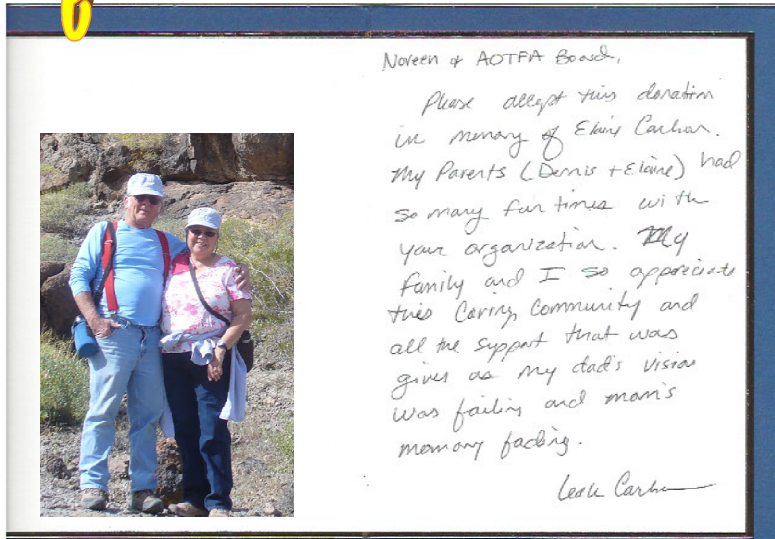 Noreen & AOTFA Board,
Please accept this donation
in memory of Elaine
My Parents (Dennis + Elaine) had
so many fun times with
your organization. My
family and I so appreciate
this Caring Community and
all the support that was
given as my dad's vision
was failing and mom's
memory fading.